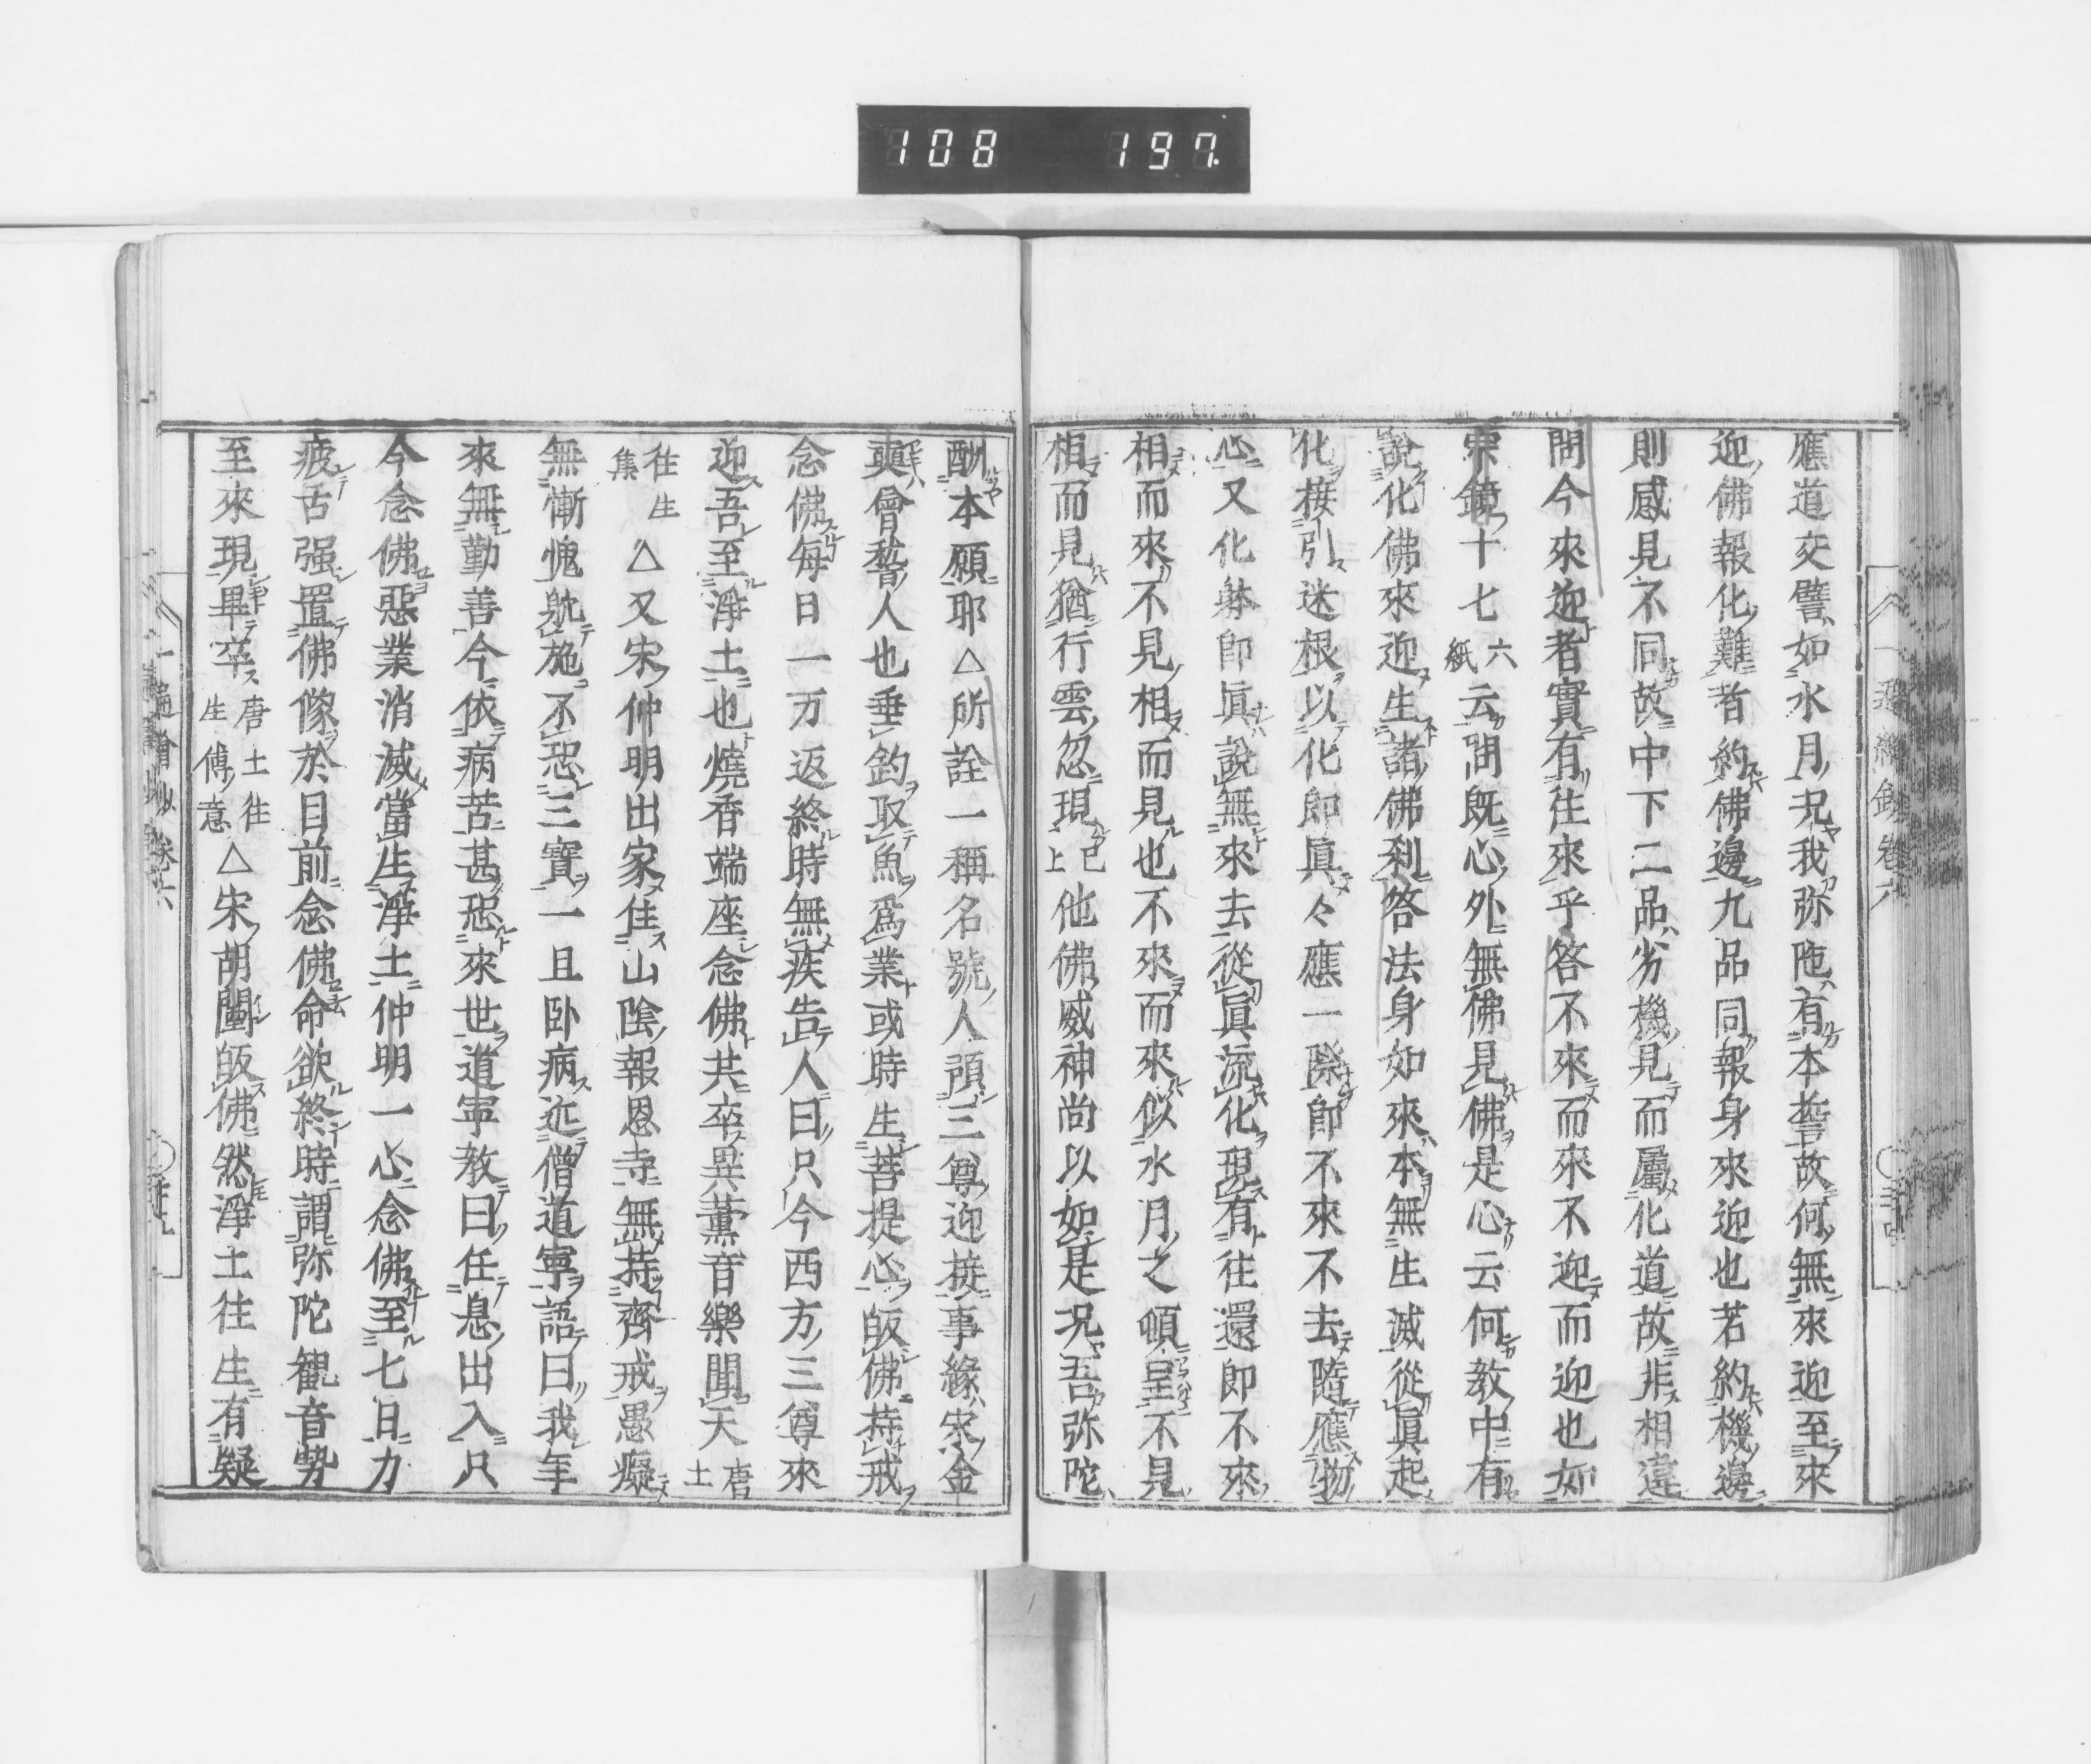 108 197.
應道交譬如水月況我弥陁有本誓故何無來迎至來
迎佛報化難者約佛邊九品同報身來迎也若約機邊
則感見不同故中下二品劣機見而屬化道故非相違
問今來迎者實有往來乎答不來而來不迎而迎也如
宗鏡十七六紙云問既心外無佛見佛是心云何教中有
說化佛來迎生諸佛刹答法身如來本無生滅從眞起
化接引迷根以化即眞々應一際即不來不去隨應物
心又化躰即眞說無來去從眞流化現有往還即不來
相而來不見相而見也不來而來似水月之頓呈不見
相而見猶行雲忽現已上他佛威神尚以如是況吾弥陀
一遍繪鈔卷六
酬本願耶△所詮一稱名號人預三尊迎接事緣宋金
奭會嵆人也垂釣取魚爲業或時生菩提心皈佛持戒
念佛每日一万返終時無疾告人曰只今西方三尊來
迎吾至淨土也燒香端座念佛共卒異薫音樂聞天唐土
往生集△又宋仲明出家住山陰報恩寺無持齊戒愚癡
無慚愧躭施不恐三寶一旦卧病近僧道寧語曰我年
來無勤善今依病苦甚恐來世道寧教曰任息出入只
今念佛惡業消滅當生淨土仲明一心念佛至七日力
疲舌强置佛像於目前念佛命欲終時謂弥陀観音勢
至來現畢卒唐土往生傳意△宋胡闉皈佛然淨土往生有疑